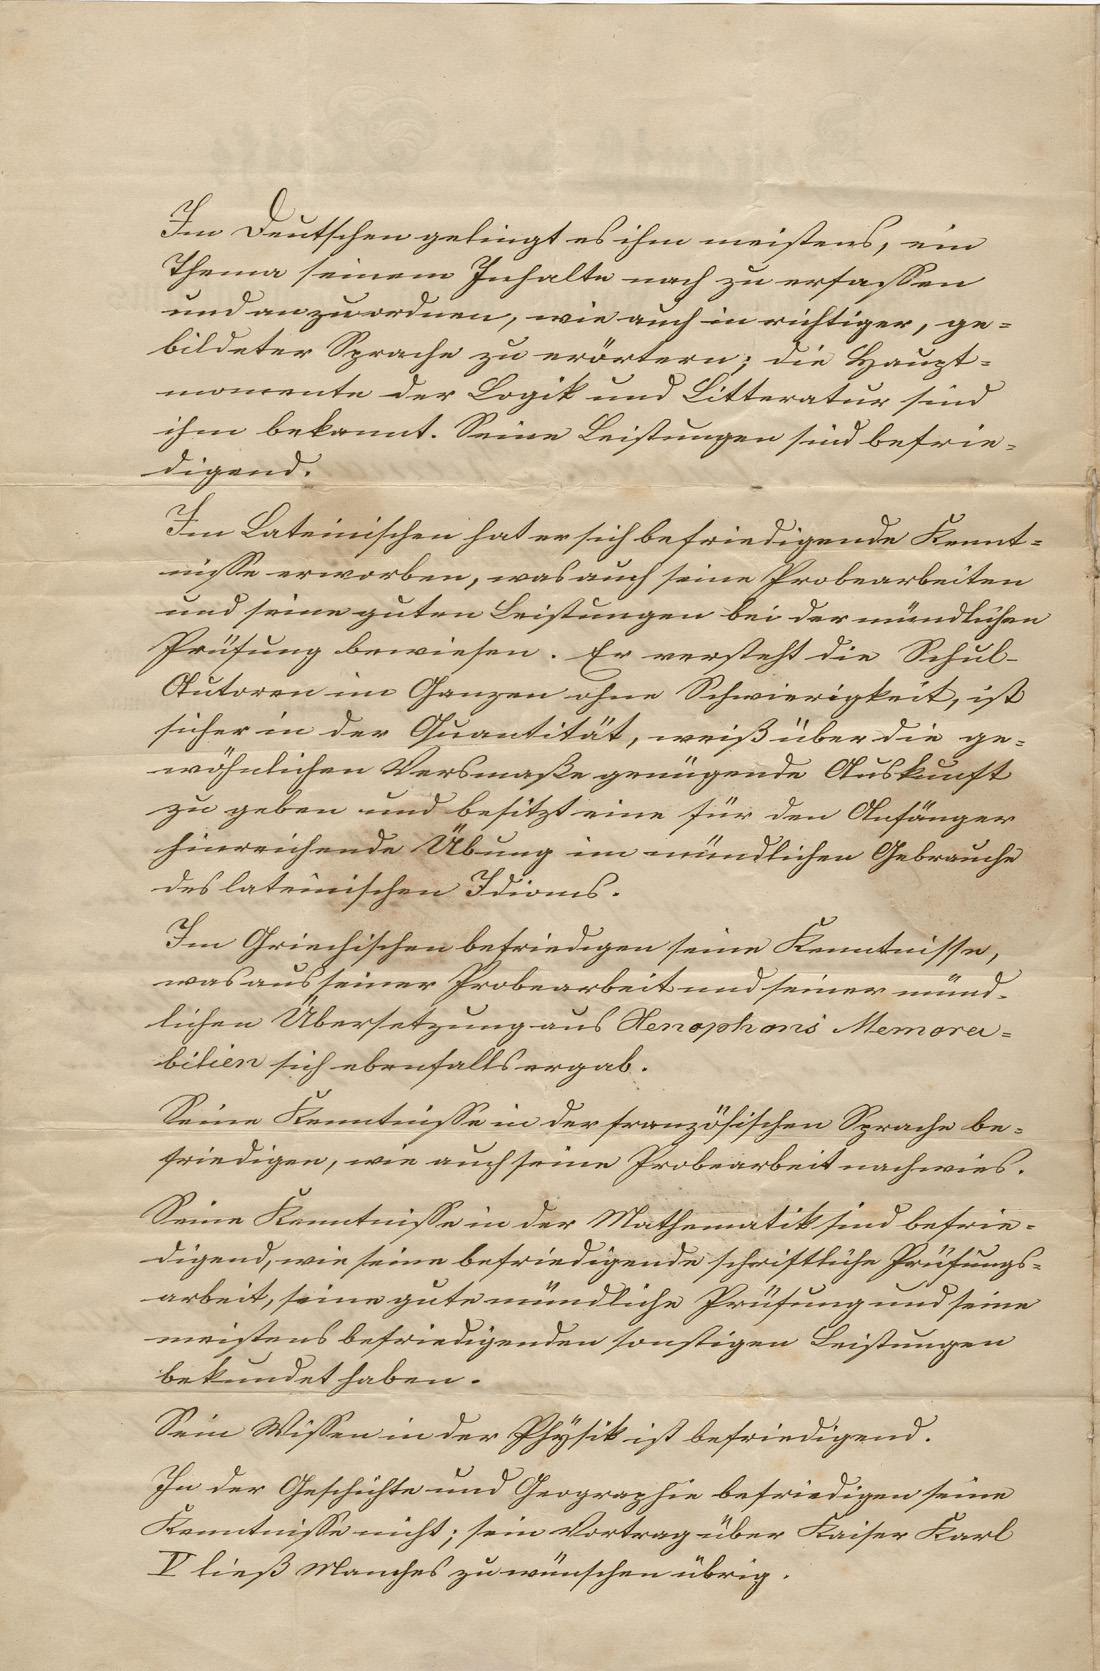 Im Deutschen gelingt es ihm meistens, ein
Thema seinem Inhalte nach zu erfassen
und anzuordnen, wie auch in richtiger, ge=
bildeter Sprache zu erörtern; die Haupt=
momente der Logik und Litteratur sind
ihm bekannt. Seine Leistungen sind befrie=
digend.
Im Lateinischen hat er sich befriedigende Kennt=
nisse erworben, was auch seine Probearbeiten
und seine guten Leistungen bei der mündlichen
Prüfung bewiesen. Er versteht die Schul-
Autoren im Ganzen ohne Schwierigkeit, ist
sicher in der Quantität, weiß über die ge=
wöhnlichen Versmaße genügende Auskunft
zu geben und besitzt eine für den Anfänger
hinreichende Übung im mündlichen Gebrauche
des lateinischen Idioms.
Im Griechischen befriedigen seine Kenntnisse,
was aus seiner Probearbeit und seiner münd=
lichen Übersetzung aus Xenophons Memora=
bilien sich ebenfalls ergab.
Seine Kenntnisse in der französischen Sprache be=
friedigen, wie auch seine Probearbeit nachwies.
Seine Kenntnisse in der Mathematik sind befrie=
digend, wie seine befriedigende schriftliche Prüfungs=
arbeit, seine gute mündliche Prüfung und seine
meistens befriedigenden sonstigen Leistungen
bekundet haben.
Sein Wissen in der Physik ist befriedigend.
In der Geschichte und Geographie befriedigen seine
Kenntnisse nicht; sein Vortrag über Kaiser Karl
V ließ Manches zu wünschen übrig.